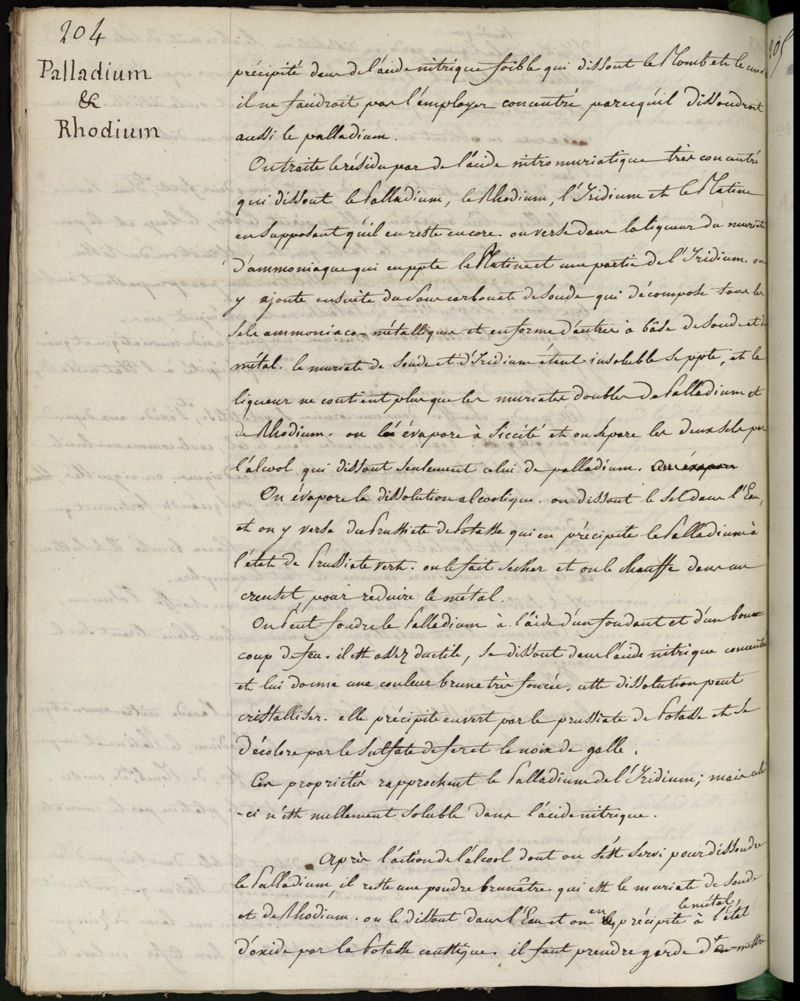 204
Palladium
&
Rhodium
précipité dans de l'acide nitrique foible qui dissout le Plomb et le cuivre
il ne faudroit pas l'employer concentré parcequ'il dissoudroit
aussi le palladium.
On traite le résidu par de l'acide nitro muriatique très concentré
qui dissout le Palladium, le Rhodium, l'Iridium et le Platine
en supposant qu'il en reste encore. on verse dans la liqueur du muriate
d'ammoniaque qui en ppte le Platine et une partie de l'Iridium. on
y ajoute ensuite du sous carbonate de soude qui décompose tous les
sels ammoniaco-métalliques et en forme d'autres à bâse de soude et de
métal. le muriate de soude et d'Iridium étant insoluble se ppte, et la
liqueur ne contient plus que les muriates doubles de Palladium et
de Rhodium. on évapore à siccité et on sépare les deux sels par
l'alcool qui dissout seulement celui de palladium. on évapore
On évapore la dissolution alcoolique. on dissout le sel dans l'Eau,
et on y verse du Prussiate de Potasse qui en précipite le Palladium à
l'état de Prussiate vert. on le fait secher et on le chauffe dans un
creuset pour réduire le métal.
On Peut fondre le Palladium à l'aide d'un fondant et d'un bon
coup de feu. il est assez ductile, se dissout dans l'acide nitrique concentré
et lui donne une couleur brune très foncée. cette dissolution peut
cristalliser. elle précipite en vert par le prussiate de Potasse et se
décolore par le sulfate de fer et le noix de galle.
Ces propriétés rapprochent le Palladium de l'Iridium; mais celui
-ci n'est nullement soluble dans l'acide nitrique.
Après l'action de l'alcool dont on s'est servi pour dissoudre
le Palladium, il reste une poudre brunâtre qui est le muriate de soude
et de Rhodium. on le dissout dans l'Eau et on en précipite le métal à l'état
d'oxide par la Potasse caustique. il faut prendre garde d'en mettre
205